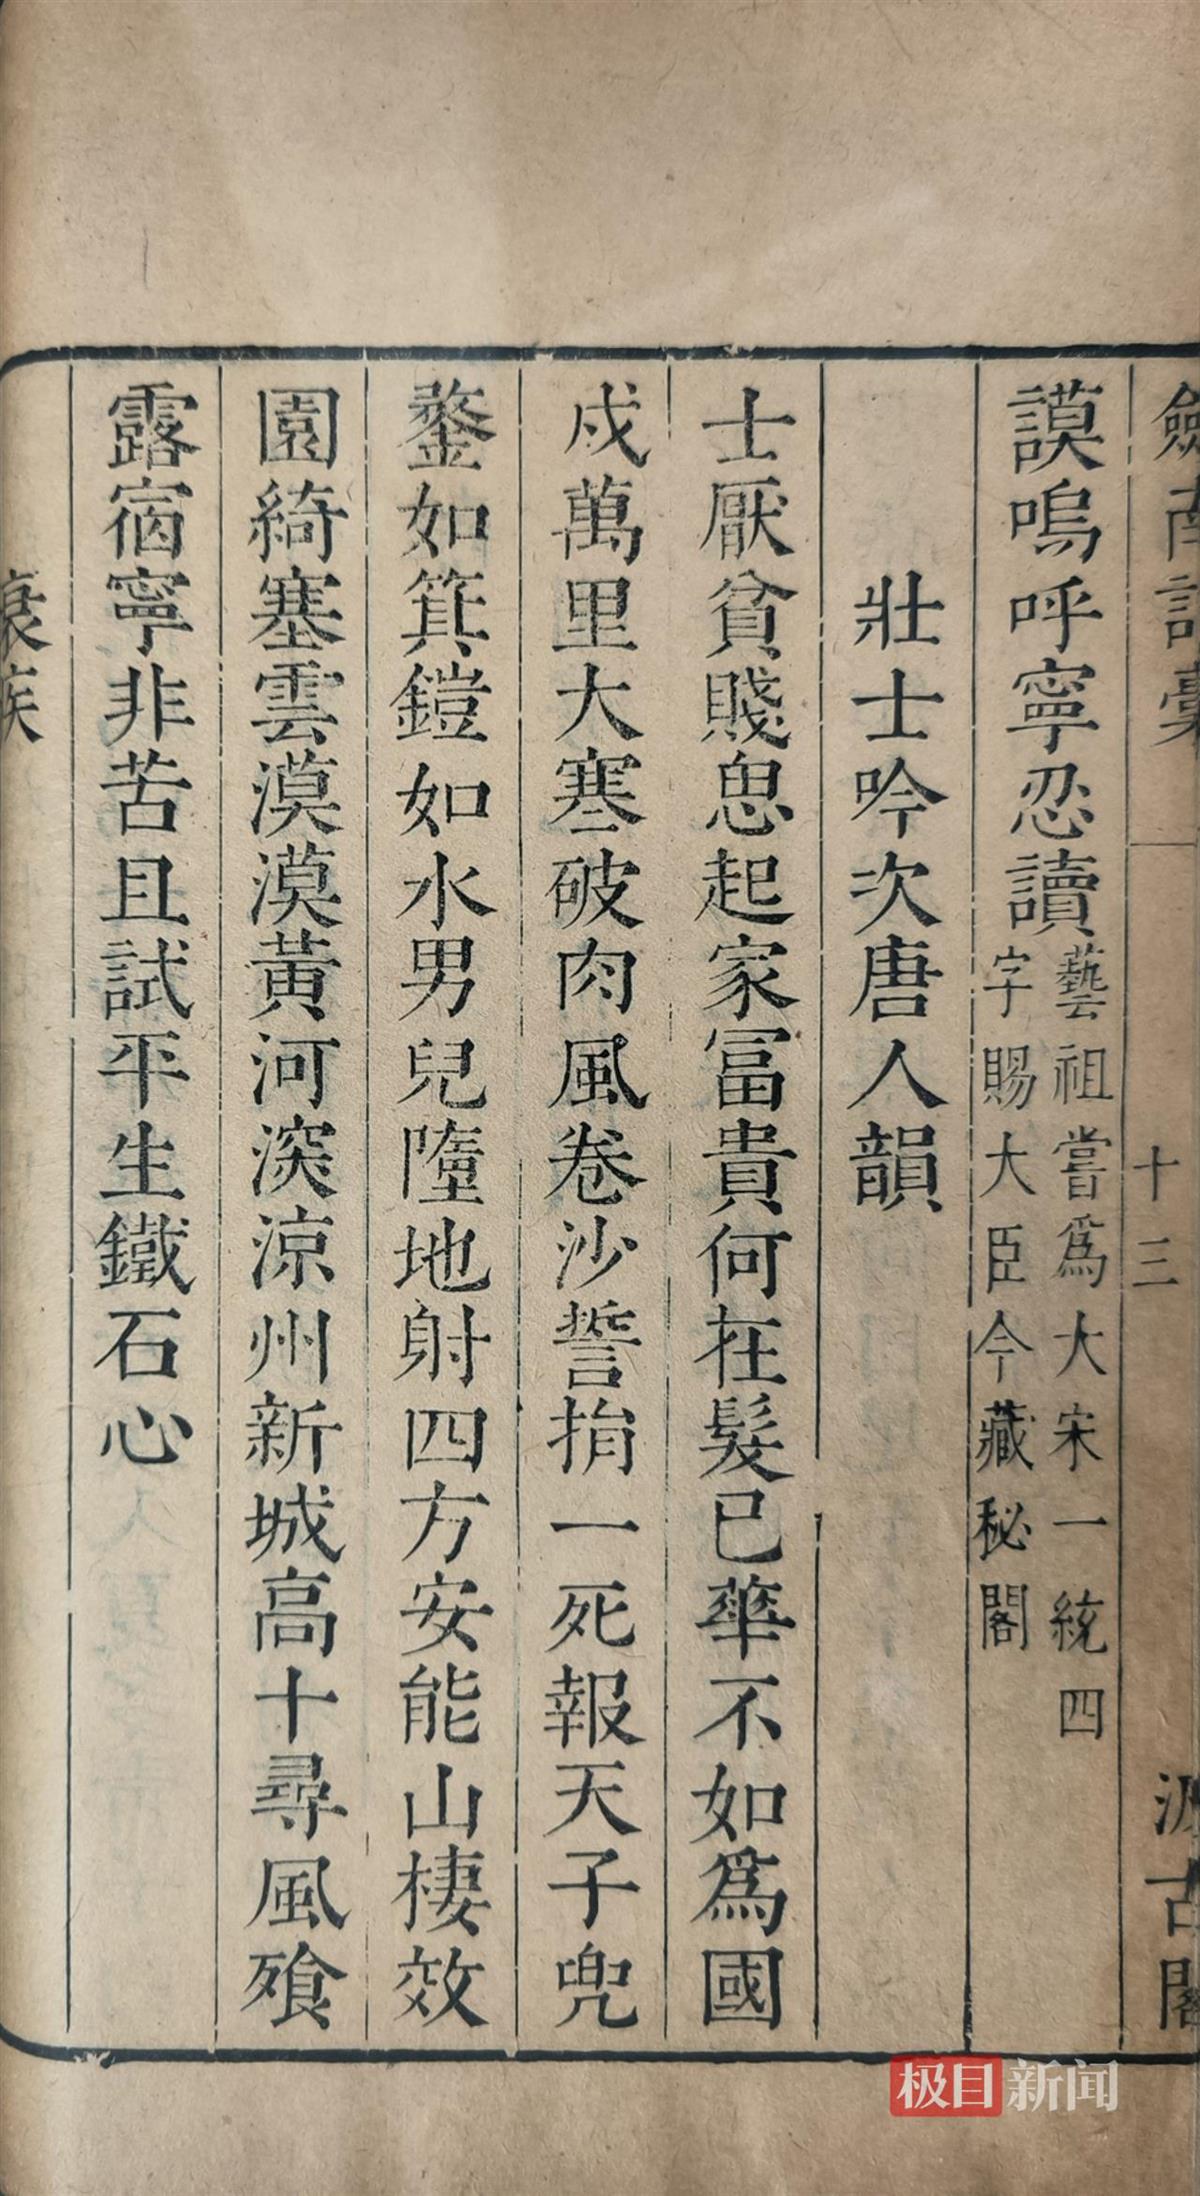 劒南詩稾
十三
汲古閣
謨嗚呼寧忍讀
藝祖嘗爲大宋一統四
字賜大臣今藏秘閣
壯士吟次唐人韻
士厭貧賤思起家冨貴何在髮已華不如爲國
戍萬里大寒破肉風卷沙誓捐一死報天子兜
鍪如箕鎧如水男兒墮地射四方安能山棲效
園綺塞雲漠漠黃河深涼州新城高十尋風飱
露宿寧非苦且試平生鐵石心
极目新闻